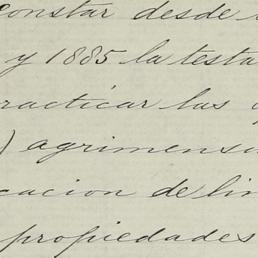 constar desde
y 1885 la testa
racticar las
) agrimensu
cacion de lin
propiedades